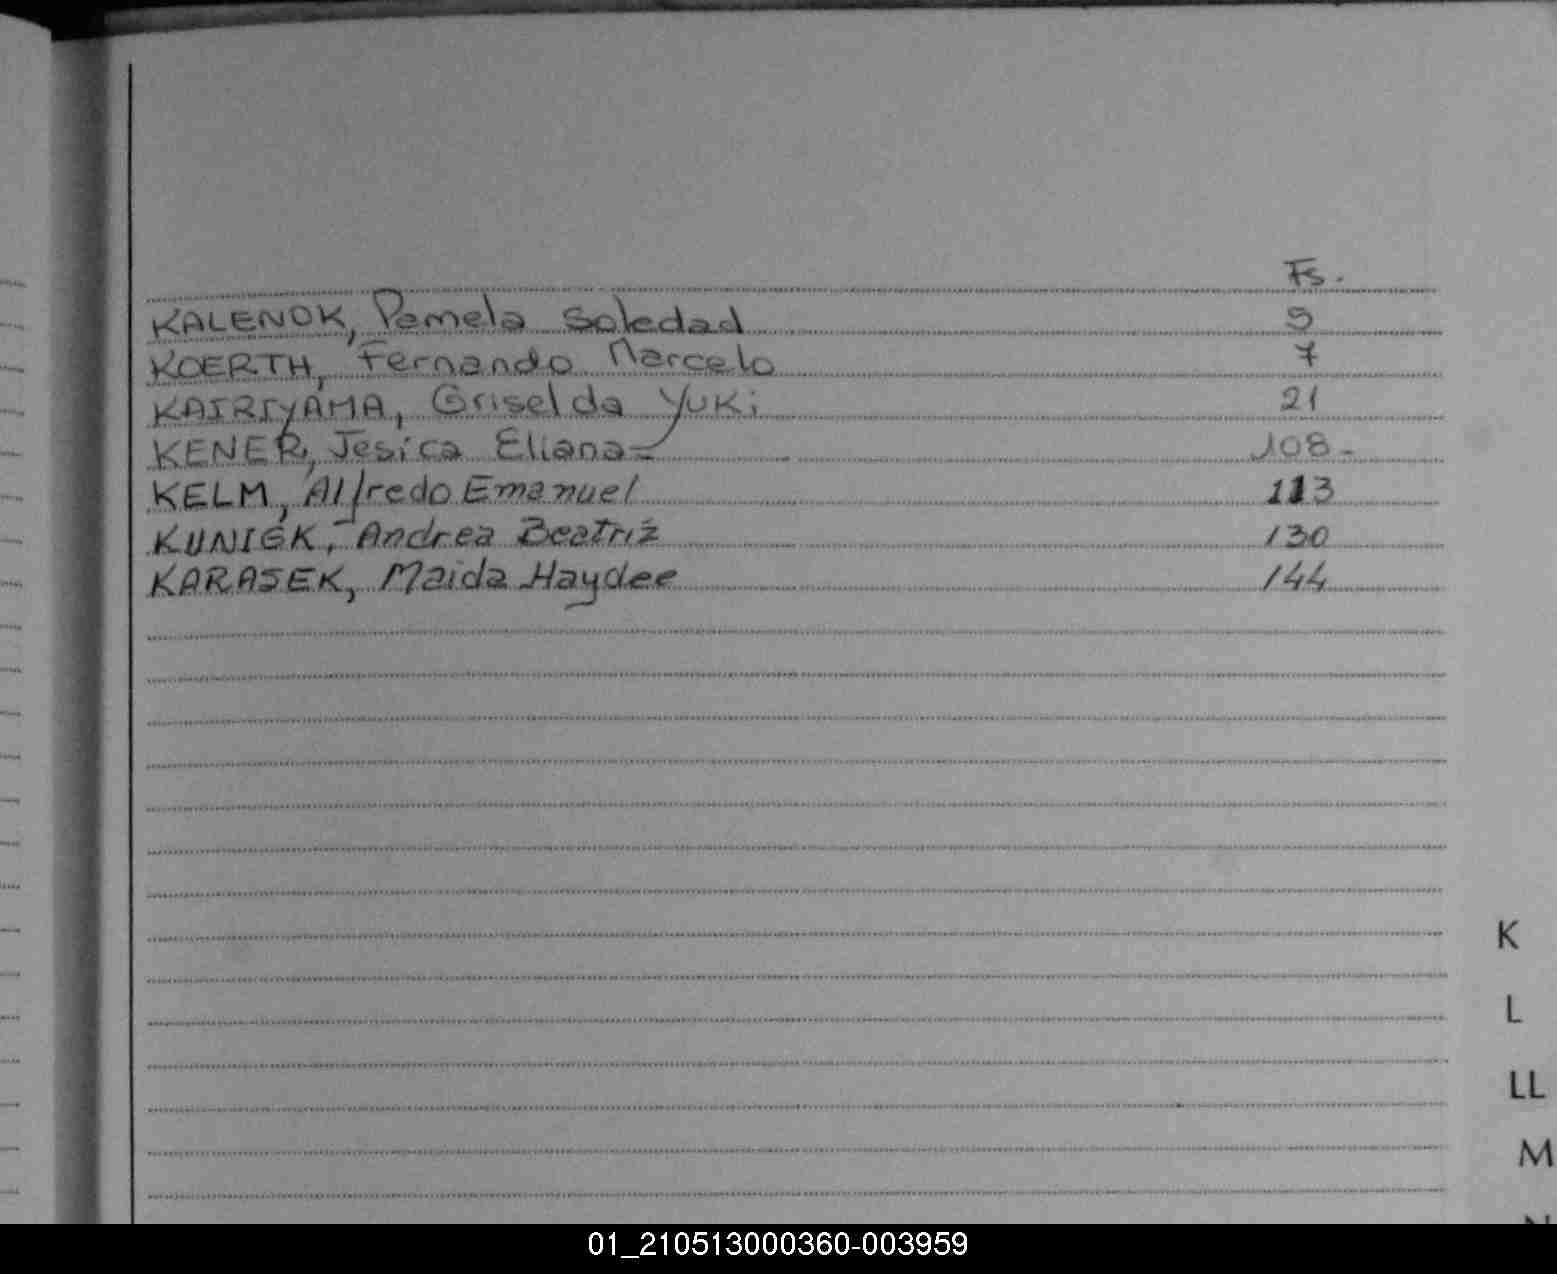 Fs.
KALENOK, Pamela Soledad 9
KOERTH, Fernando Marcelo 7
KAIRIYAMA, Griselda YUKi 21
KENER, Jesica Eliana= 108-
KELM, Alfredo Emanuel 113
KUNIGK, Andrea Beatriz 130
KARASEK, Maida Haydee 144
K
L
LL
M
N
01_210513000360-003959